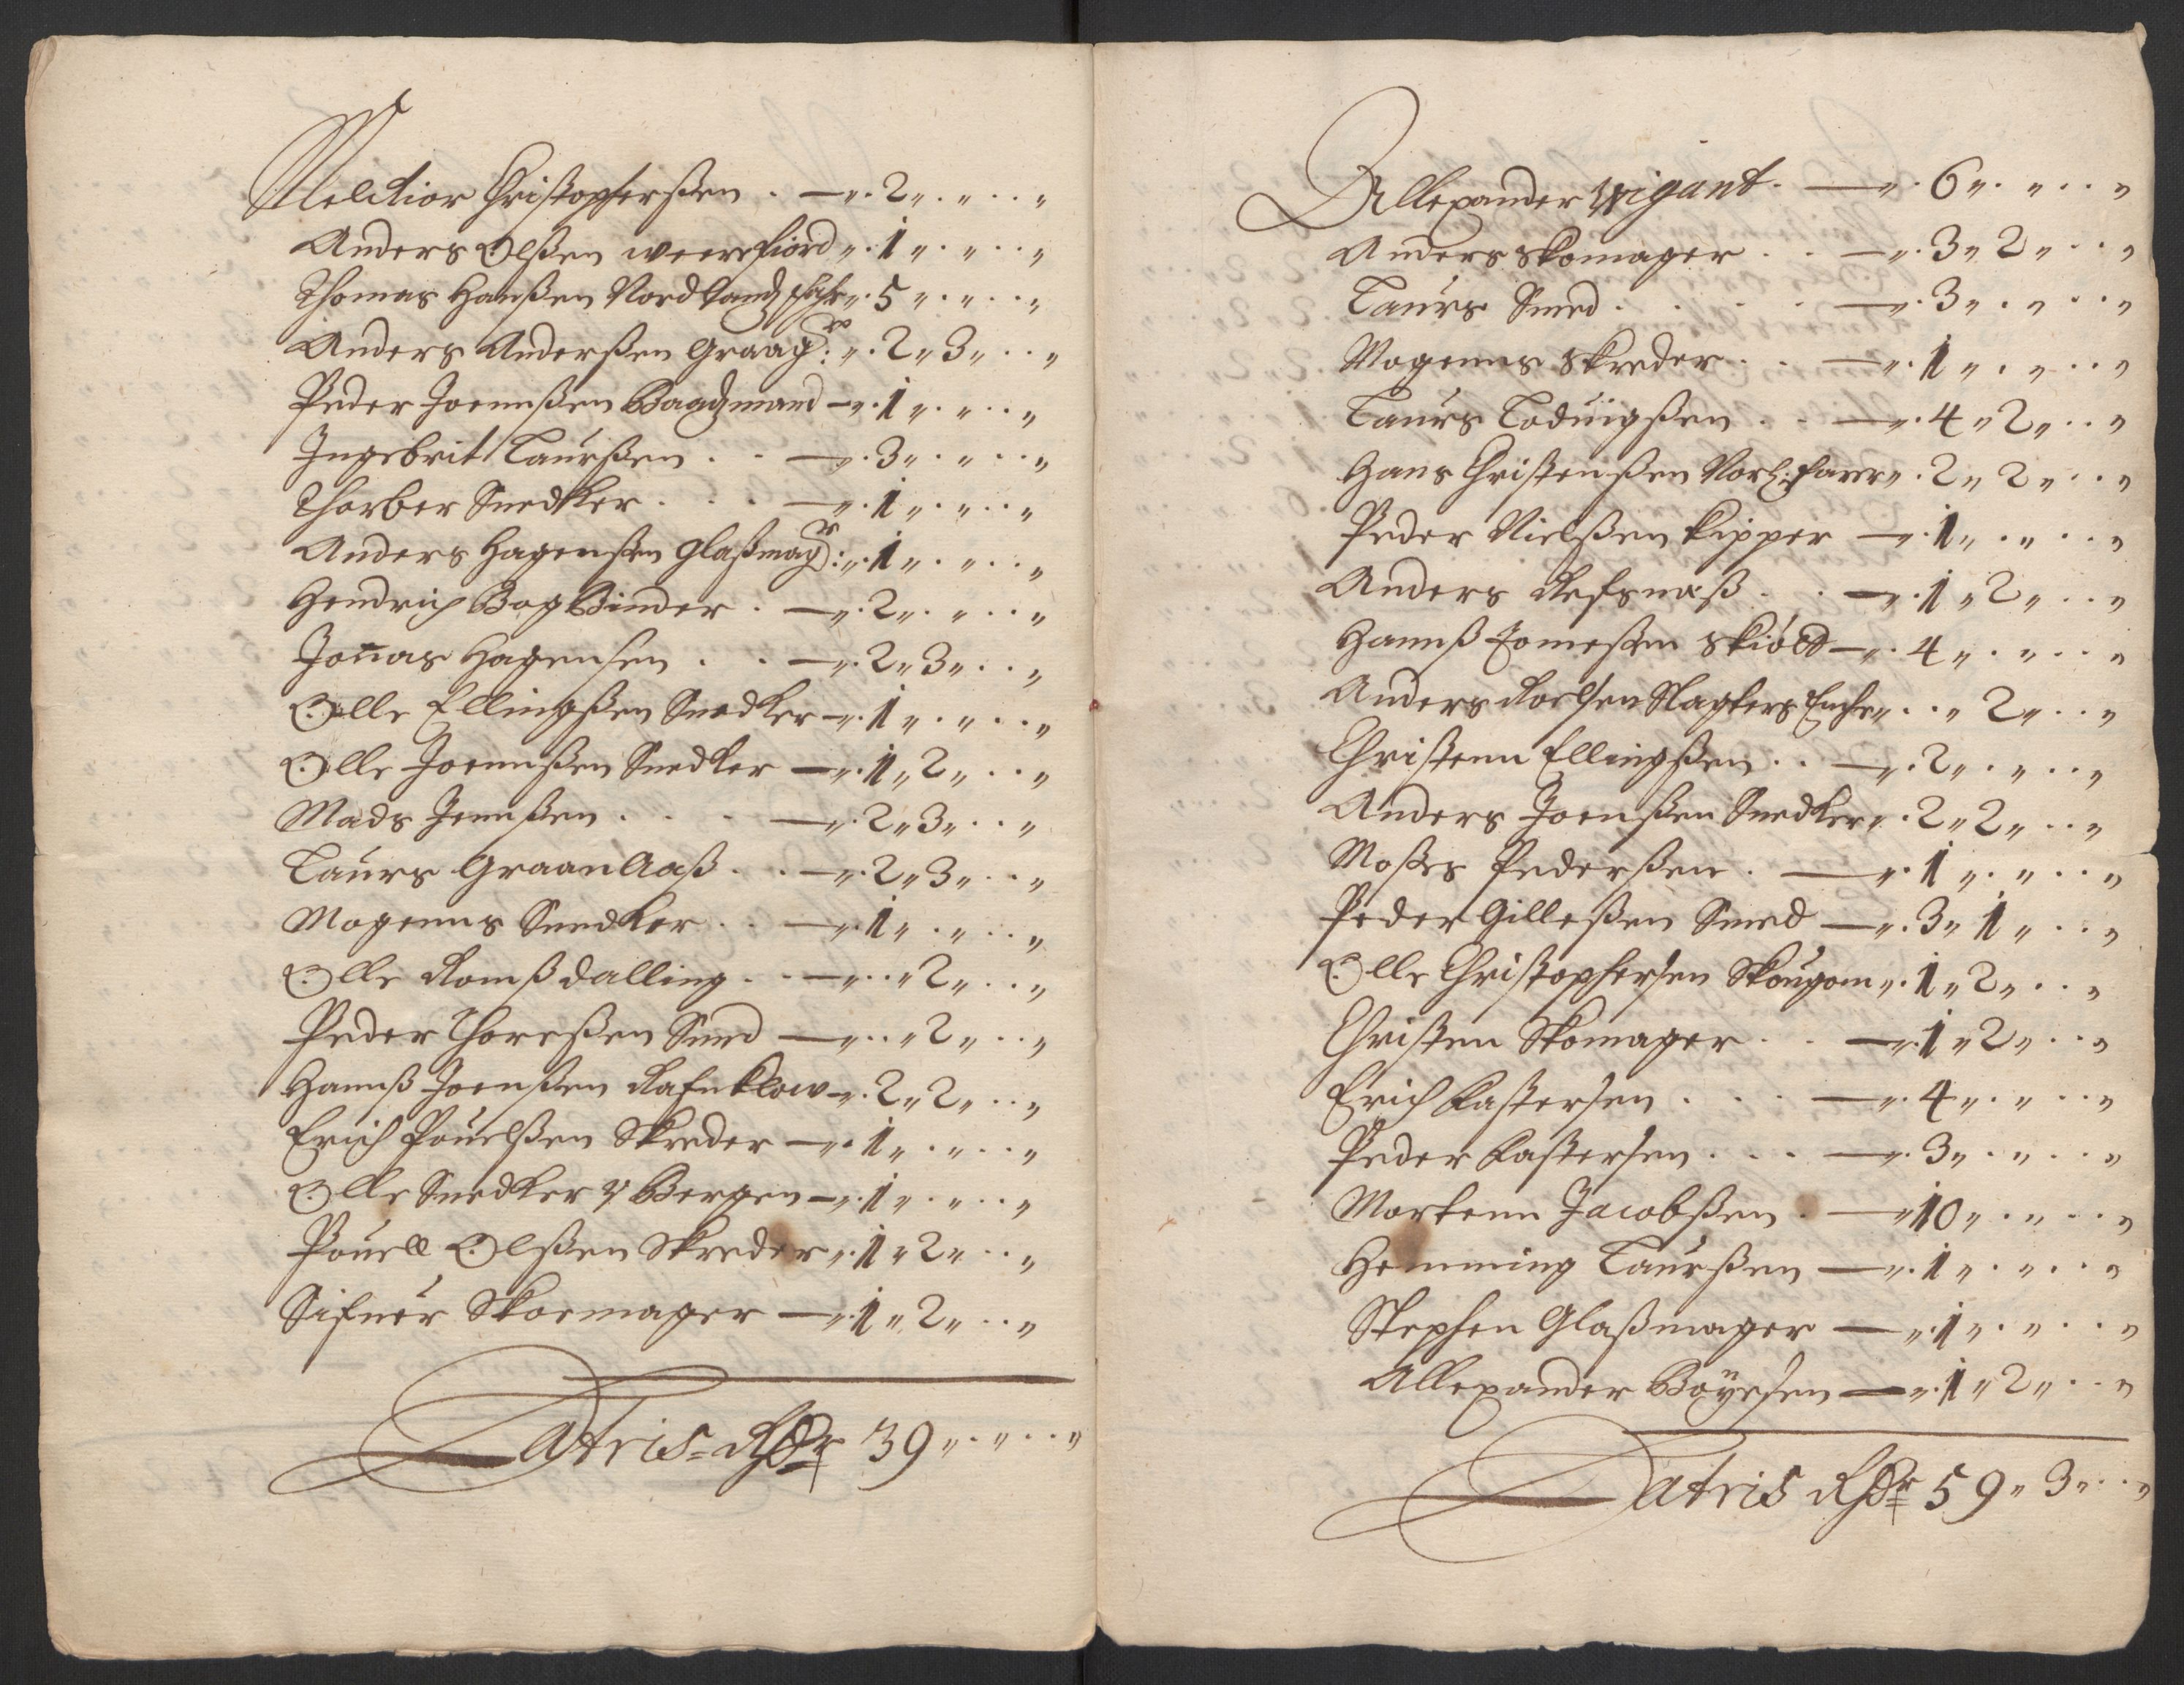 Melchior Christophersßen . — „. 2 „ . „ . . „
Anders Olßen weerefiord „. 1 „ . „ . . „
Thomas Hanßen Nordlandz „. 5 „ . „ . . „
Anders Anderßen Graag: „. 2 „ 3 „ . . „
Peder Joennßen Baadzmand — „. 1 „ . „ . . „
Ingebrit Laurßen . . — „. 3 „ . „ . . „
Thorber Snedker . . . — „. 1 „ . „ . . „
Anders Hagenßen Glaßmagr: „. 1 „ . „ . . „
Hendrich BogBinder . — „. 2 „ . „ . . „
Jonnas Hagensen . . — „. 2 „ 3 „ . . „
Olle Ellingßen Snedker — „. 1 „ . „ . . „
Olle Joennßen Snedker — „. 1 „ 2 „ . . „
Mads Jennßen . . . — „. 2 „ 3 „ . . „
Laurs GraanAaß . . — „. 2 „ 3 „ . . „
Mogenns Snedker . . — „. 1 „ . „ . . „
Olle Romßdalling . . — „ . . „ 2 „ . . „
Peder Thoreßen Smed — „ . . „ 2 „ . . „
Hannß Joenßen Rafnklow — „. 2 „ 2 „ . . „
Erich Pouelßen Skreder — „. 1 „ . „ . . „
Olle Snedker y Bergen — „. 1 „ . „ . . „
Pouell Olßen Skreder „. 1 „ 2 „ . . „
Sifuer Skoemager — „. 1 „ 2 „ . . „
Latris Rdr 39 „ . „ . . „
Allexander Wigant . — „. 6 „ . „ . . „
Anders Skomager . . — „. 3 „ 2 „ . . „
Laurs Smed . . . . — „. 3 „ . „ . . „
Mogenns Skreder . . — „. 1 „ . „ . . „
Laurs Loduigßen . . — „. 4 „ 2 „ . . „
Hans Christenßen Norl: farer „. 2 „ 2 „ . . „
Peder Nielßen Kipper — „. 1 „ . „ . . „
Anders Refsnæß . . — „. 1 „ 2 „ . . „
Hannß Tomeßen Skiöld — „. 4 „ . „ . . „
Anders Roelsen Slagters Enche „ . . „ 2 „ . . „
Christenn Ellingßen . . — „. 2 „ . „ . . „
Anders Joenßen Snedker „. 2 „ 2 „ . . „
Moßes Pederßen . — „. 1 „ . „ . . „
Peder Gilleßen Smed — „. 3 „ 1 „ . . „
Olle Christophersen Skougom „. 1 „ 2 „ . . „
Christen Skomager . . — „. 1 „ 2 „ . . „
Erich Kastersen . . . — „. 4 „ . „ . . „
Peder Kastersen . . . — „. 3 „ . „ . . „
Mortenn Jacobßen . — „ 10 „ . „ . . „
Hemming Laurßen — „. 1 „ . „ . . „
Stephen Glaßmager — „. 1 „ . „ . . „
Allexander Böyesen — „. 1 „ 2 „ . . „
Latris Rdr 59 „ 3 „ . . „